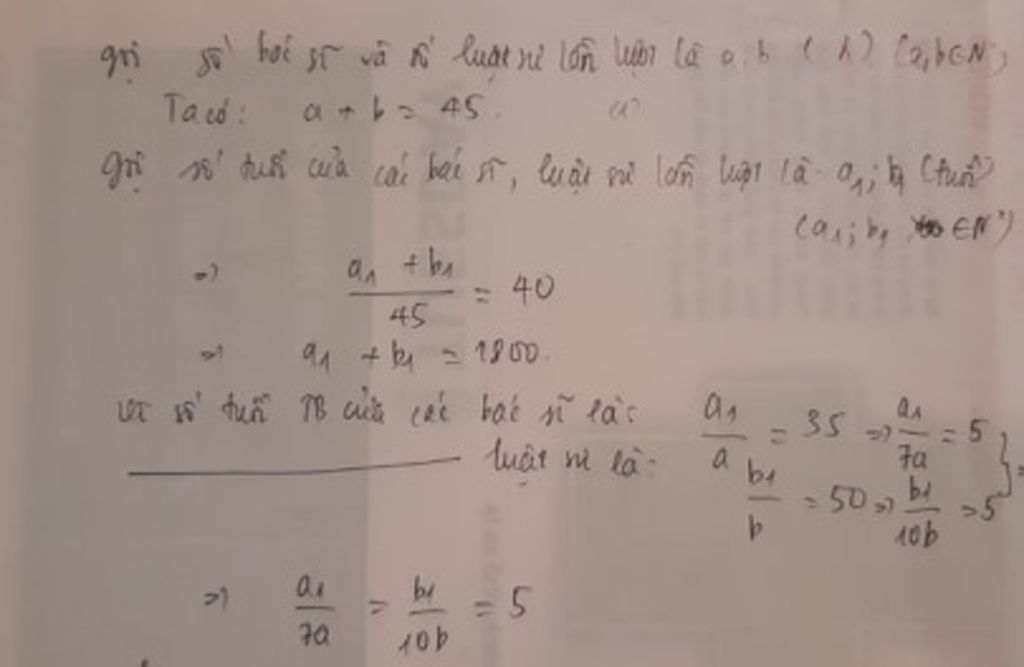 gọi số bác sĩ và số luật sư lần lượt là a; b ( ) (a, b ∈ N*)
Ta có: a + b = 45.
gọi số tuổi của các bác sĩ, luật sư lần lượt là a₁; b₁ (tuổi)
(a₁; b₁ ∈ N*)
=> (a₁ + b₁)/45 = 40
=> a₁ + b₁ = 1800.
Vì số tuổi TB của các bác sĩ là: a₁/a = 35 => a₁/7a = 5
luật sư là: b₁/b = 50 => b₁/10b = 5 } =
=> a₁/7a = b₁/10b = 5